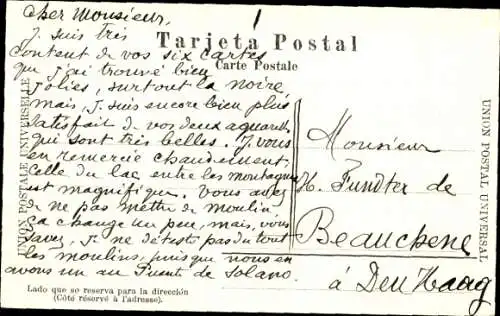 Cher Monsieur,
Tarjeta Postal
Carte Postale
J. suis très
content de vos six cartes
que j'ai trouvé bien
jolies, surtout la noire,
mais, j. suis encore bien plus
satisfait de vos deux aquarell
qui sont très belles. J. vous
en remercie chaudement.
Celle du lac entre les montagnes
est magnifique. Vous avez
de ne pas mettre de moulin,
ça change un peu, mais, vous
savez, j. ne déteste pas du tout
les moulins, puisque nous en
avons un au Puente de Solano.
Monsieur
H. Fundter de
Beauchene
à Den Haag
UNION POSTALE UNIVERSELLE
UNION POSTAL UNIVERSAL
Lado que se reserva para la dirección
(Côté réservé à l'adresse).